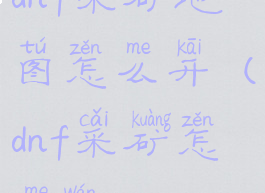 dnf采矿地
tú zěn me kāi
图怎么开（
cǎi kuàng zěn
dnf采矿怎
me wán